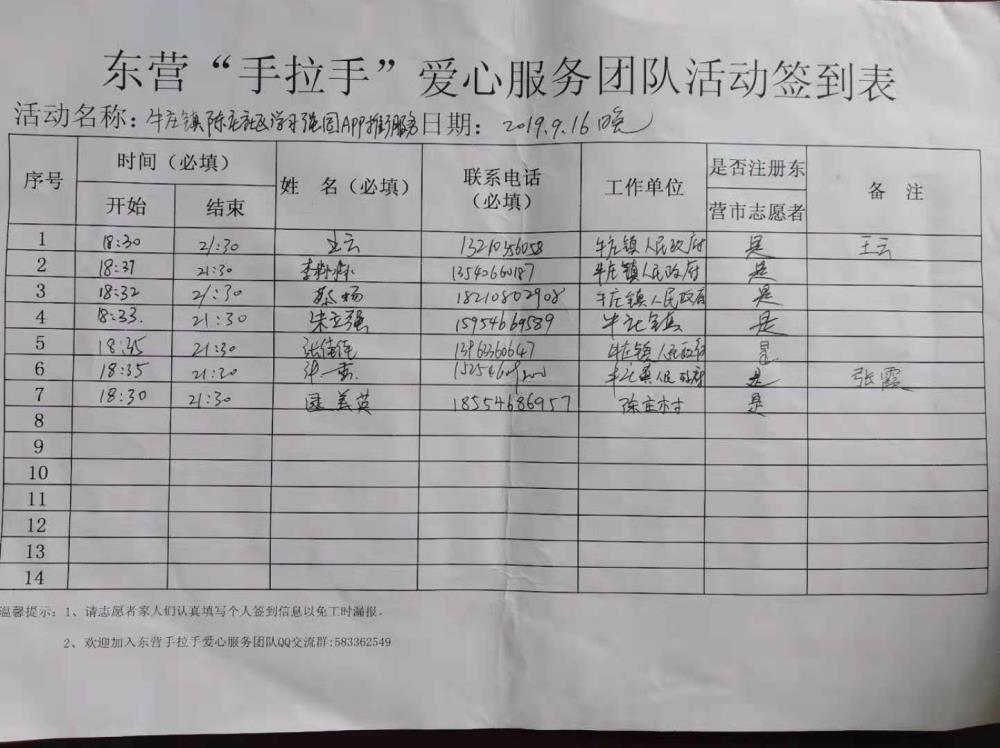 东营“手拉手”爱心服务团队活动签到表
活动名称：牛庄镇陈庄社区学习强国APP推广服务 日期：2019.9.16晚
序号 时间（必填） 姓 名（必填） 联系电话（必填） 工作单位 是否注册东营市志愿者 备 注
开始 结束
1 18:30 21:30 王云 13210356058 牛庄镇人民政府 是 王云
2 18:31 21:30 李 13540660187 牛庄镇人民政府 是
3 18:32 21:30 蔡杨 18210802908 牛庄镇人民政府 是
4 18:33. 21:30 朱立强 15954669589 牛庄镇 是
5 18:35 21:30 张佳佳 13963360647 牛庄镇人民政府 是
6 18:35 21:30 张霞 牛庄镇人民政府 是 张霞
7 18:30 21:30 美英 18554686957 陈庄村 是
8
9
10
11
12
13
14
温馨提示：1、请志愿者家人们认真填写个人签到信息以免工时漏报。
2、欢迎加入东营手拉手爱心服务团队QQ交流群:583362549